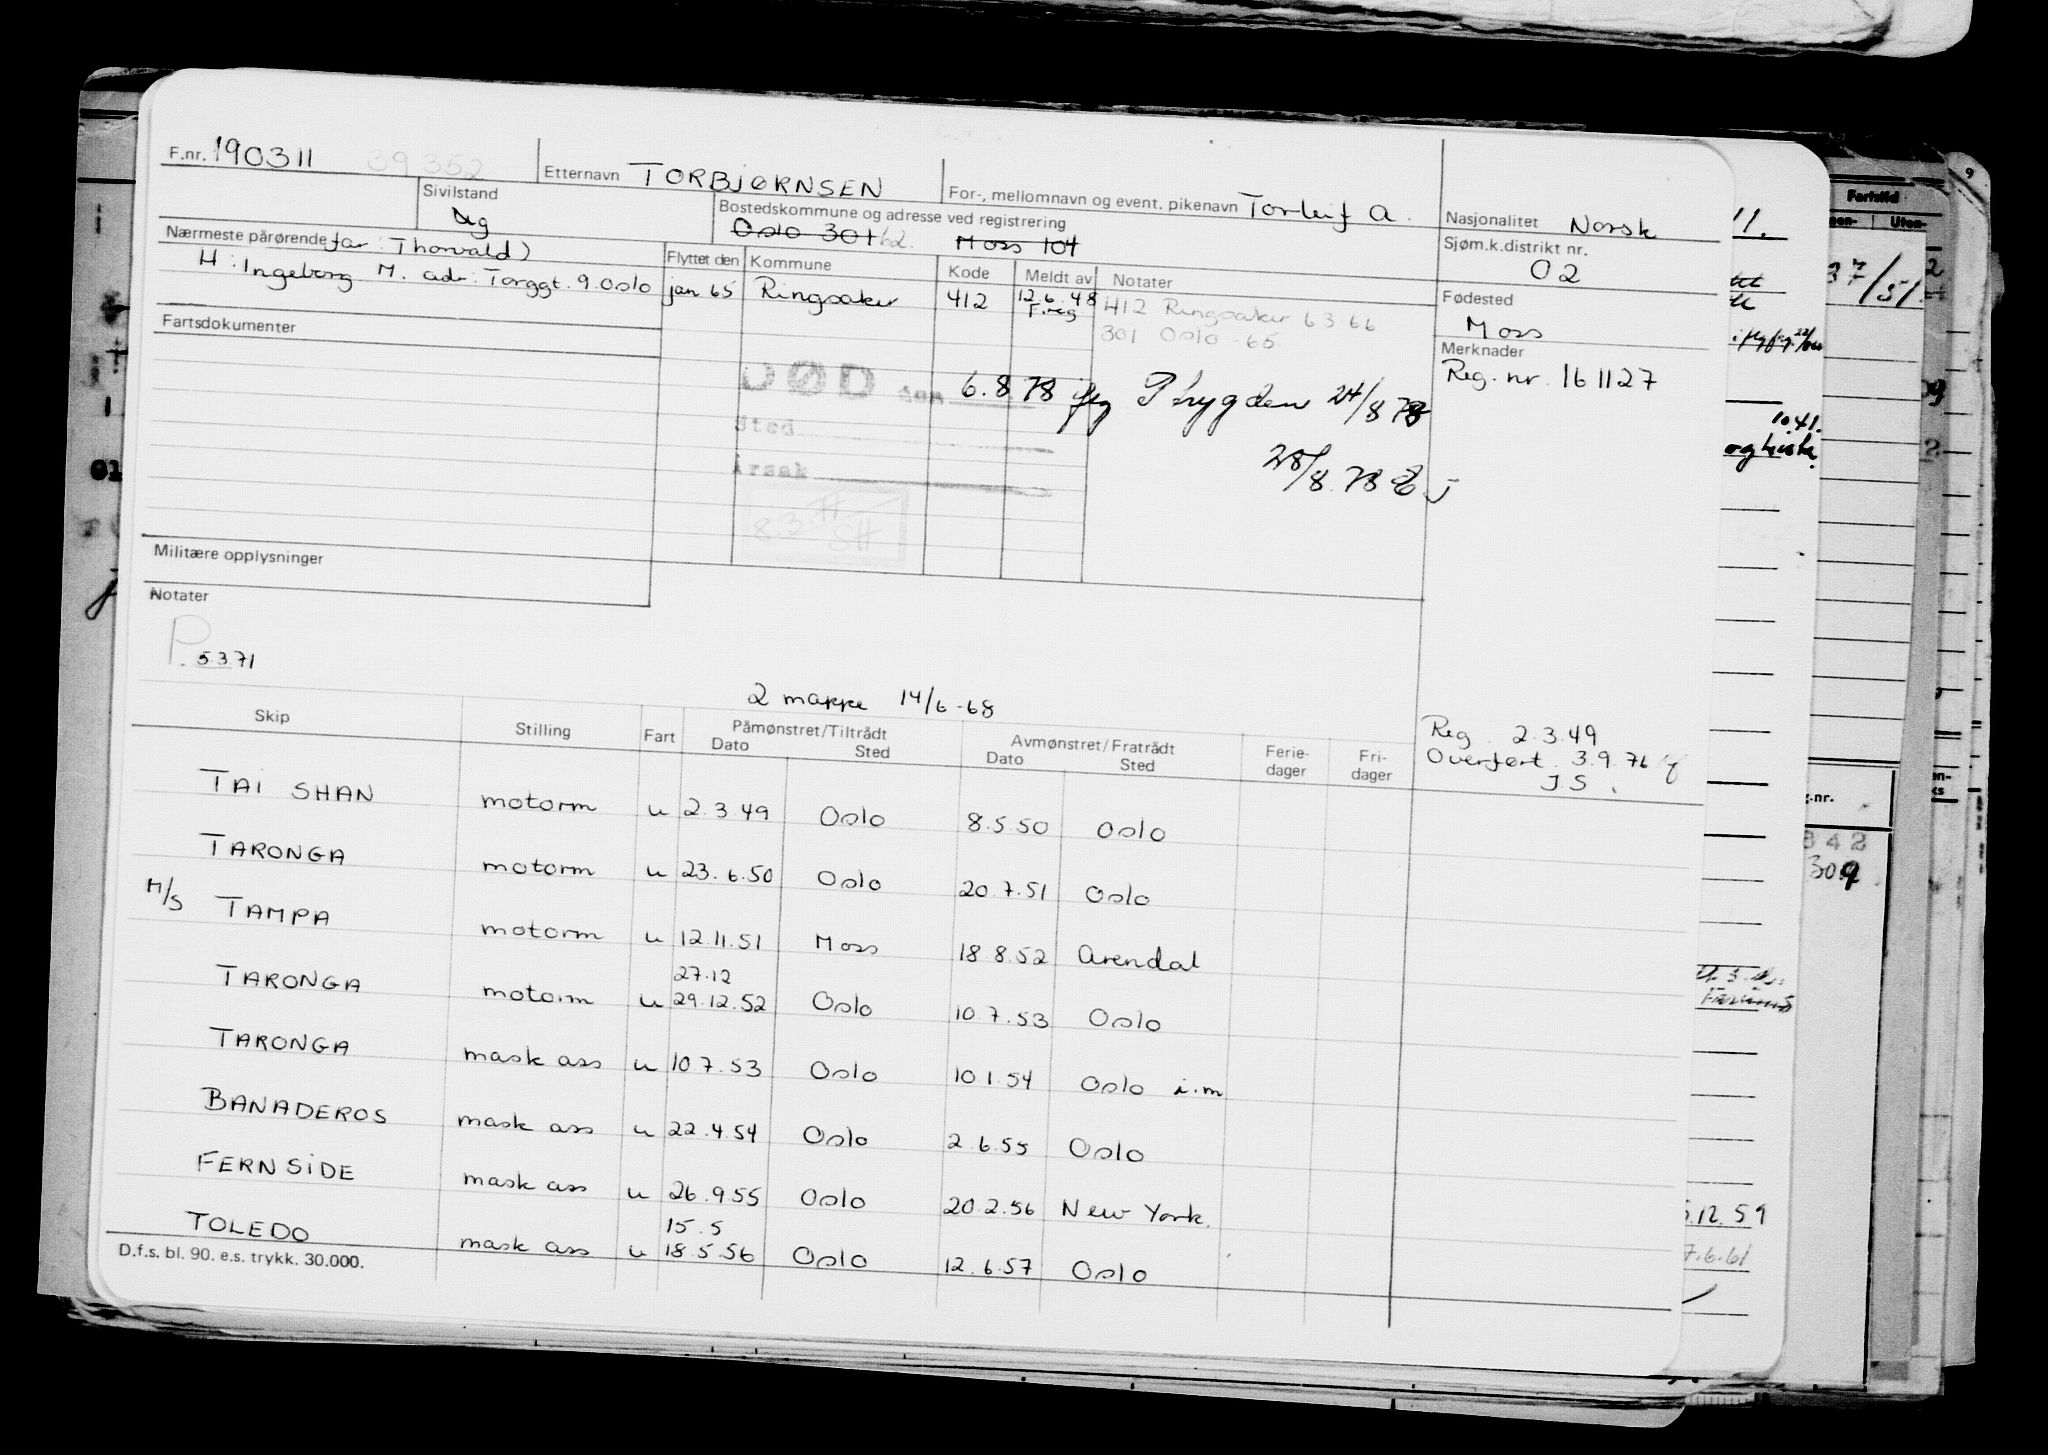 F.nr. 190311 39352 Etternavn TORBJØRNSEN For-, mellomnavn og event. pikenavn Torleif A. Nasjonalitet Norsk
Sivilstand g Bostedskommune og adresse ved registrering Oslo 301 Moss 104
Sjøm.k.distrikt nr. 02
Nærmeste pårørende far: Thorvald)
H: Ingeborg M. adr: Torggt. 9. Oslo
Flyttet den Kommune Kode Meldt av Notater
jan 65 Ringsaker 412 12.6.48 F.reg
412 Ringsaker 63 66
301 Oslo -65
Fødested
Moss
Merknader
Reg. nr. 161127
Fartsdokumenter
DØD den 6.8.78 Trygden 24/8 78
Sted
28/8.78
Årsak
8.3.
SH
Militære opplysninger
Notater
P. 5.3.71
2 mappe 14/6-68
Reg. 2.3.49
Overført. 3.9.76
J.S.
Skip Stilling Fart Påmønstret/Tiltrådt Dato Sted Avmønstret/Fratrådt Dato Sted Ferie-dager Fri-dager
TAI SHAN motorm u 2.3.49 Oslo 8.5.50 Oslo
TARONGA motorm u 23.6.50 Oslo 20.7.51 Oslo
M/S TAMPA motorm u 12.11.51 Moss 18.8.52 Arendal
27.12
TARONGA motorm u 29.12.52 Oslo 10.7.53 Oslo
TARONGA mask ass u 10.7.53 Oslo 10.1.54 Oslo i.m
BANADEROS mask ass u 22.4.54 Oslo 2.6.55 Oslo
FERNSIDE mask ass u 26.9.55 Oslo 20.2.56 New York.
15.5
TOLEDO mask ass u 18.5.56 Oslo 12.6.57 Oslo
D.f.s. bl. 90. e.s. trykk. 30.000.
Fartstid
Uten-
37/51
10.41.
g.nr.
842
309
.12.59
7.6.61